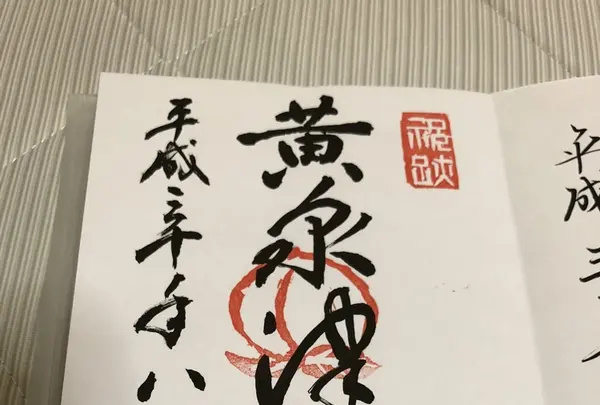 平成三
黄泉津
平成三十年八